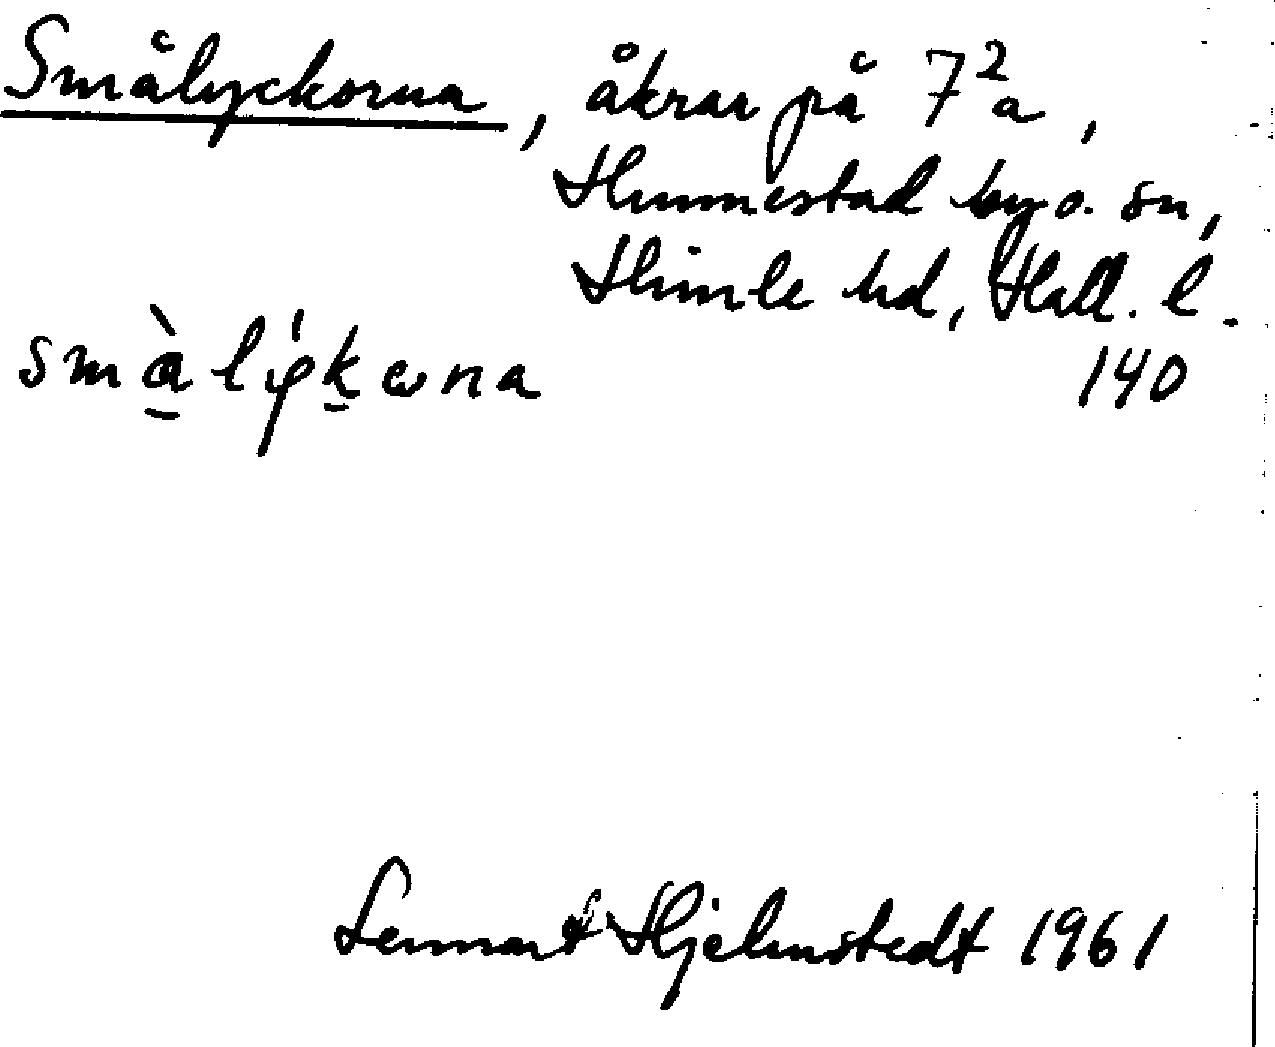 Smålyckorna, åkrar på 7²a,
Hunnestad by o. sn,
Himle hd, Hall. l.
140
småly̨kωrna
Lennart Hjelmstedt 1961